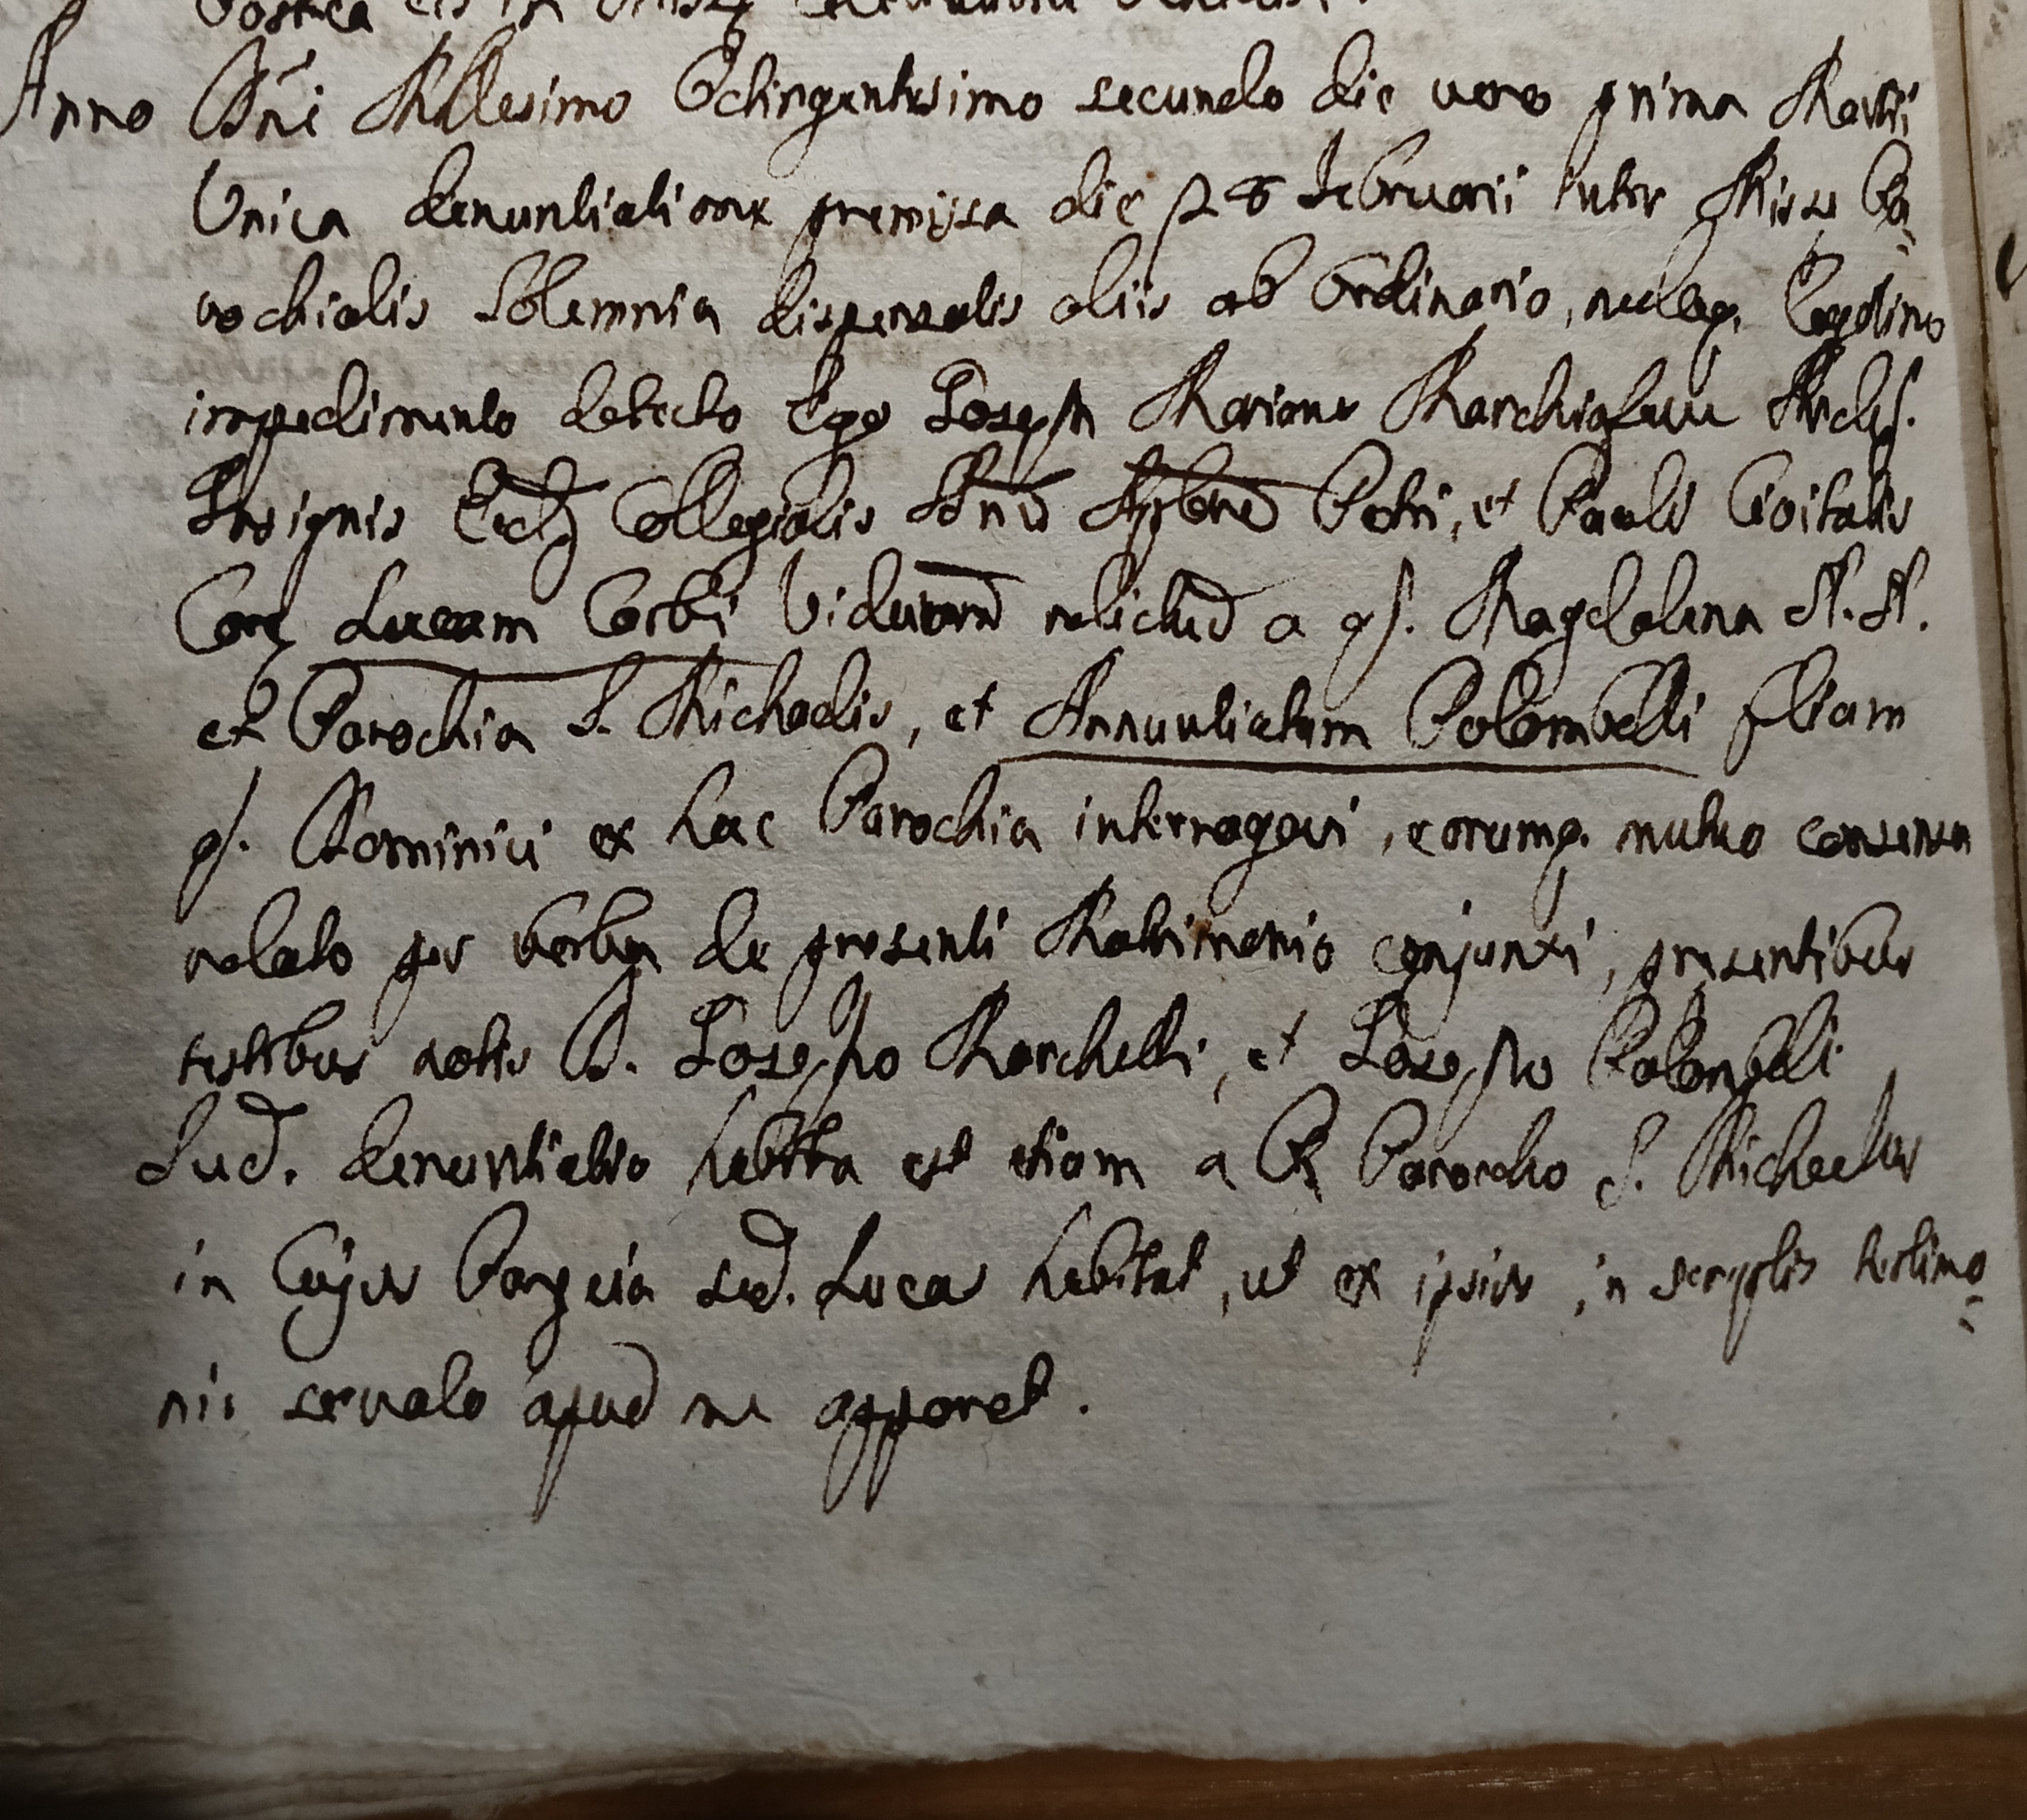 Postea eis in Missæ
Anno Dñi Millesimo Octingentesimo secundo die vero prima Martii
Unica denuntiatione premissa die 28 Februarii inter Missæ Pa=
rochialis Solemnia dispensatis aliis ab Ordinario, nulloq. Legitimo
impedimento detecto Ego Joseph Marianus Marchiafava Archip.
Insignis Eccle Collegialis SSrum Applorum Petri, et Pauli Civitatis
Coræ Lucam Corbi Viduum relictum a q. Magdalena N. N.
ex Parochia S. Michaelis, et Annuntiatam Palombelli filiam
q. Dominici ex hac Parochia interrogavi, eorumq. mutuo consensu
relato per verba de presenti Matrimonio conjunxi, presentibus
testibus notis D. Josepho Marchetti, et Josepho Palombelli
Sud. denuntiatio habita est etiam a R. Parocho S. Michaelis
in Cujus Parœcia sud. Lucas habitat, ut ex ipsius in scriptis testimo=
nio servato apud me apparet.